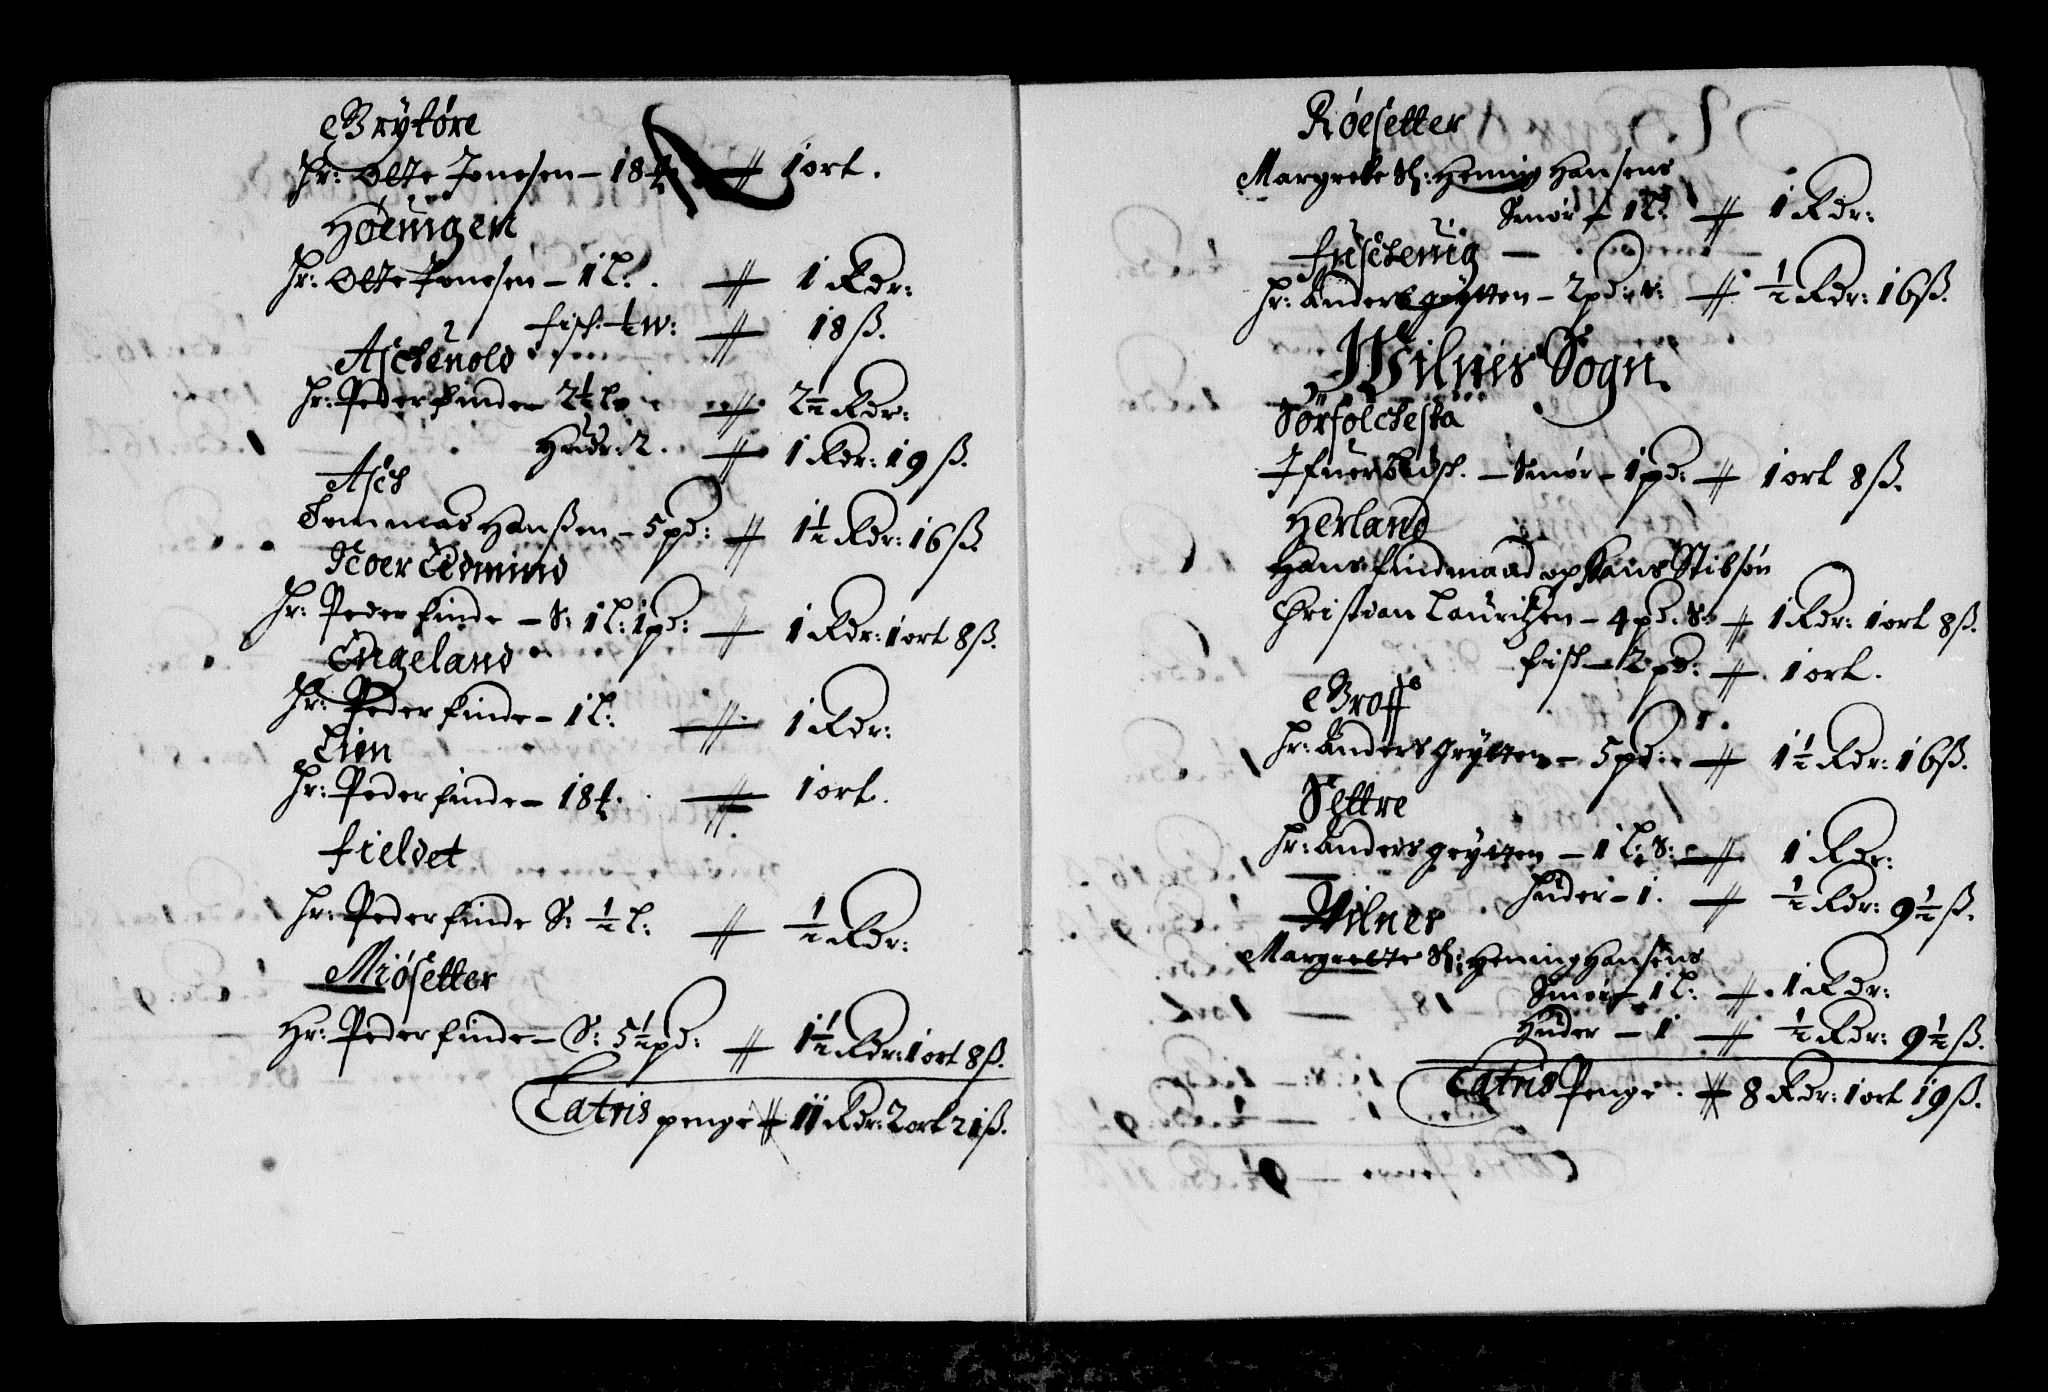 Brytøre
Hr: Otte Jonesen – 18 # 1 ort.
Høeuigen
Hr: Otte Jonesen – 1 L: # 1 Rdr:
fisch: ½ W: # 18 ß.
Aschenold
Hr: Peder finde 2½ L # 2½ Rdr:
Hudr: 2. # 1 Rdr: 19 ß.
Asch
Tommas Hanßen – 5 pd: # 1½ Rdr: 16 ß.
Hr: Peder finde – S: 1 L: 1 pd: # 1 Rdr: 1 ort 8 ß.
Engeland
Hr: Peder finde – 1 L: # 1 Rdr:
Lien
Hr: Peder finde – 18 # 1 ort.
fieldet
Hr: Peder finde S: ½ L: # ½ Rdr:
Miøsetter
Hr: Peder finde – S: 5½ pd: # 1½ Rdr: 1 ort 8 ß.
Latris penge # 11 Rdr: 2 ort 21 ß.
Røesetter
Margrete Sl: Hening Hansens
Smør – 1 L: # 1 Rdr:
Hr: Anders grytten – 2 pd: S: # ½ Rdr: 16 ß.
Wilnes Sogn
Sørfolchesta
– Smør – 1 pd: # 1 ort 8 ß.
Herland
Hans findmaad op Hans Stibsøn
Christian Lauritzen – 4 pd: S: # 1 Rdr: 1 ort 8 ß.
fisch – 2 pd: # 1 ort.
Broff
Hr: Anders grytten – 5 pd: # 1½ Rdr: 16 ß.
Settre
Hr: Anders grytten – 1 L: S: – # 1 Rdr:
Huder – 1. # ½ Rdr: 9½ ß.
Wilnes
Margrette Sl: Hening Hansens
Smør – 1 L: # 1 Rdr:
Huder – 1 # ½ Rdr: 9½ ß.
Latris Penge # 8 Rdr: 1 ort 19 ß.